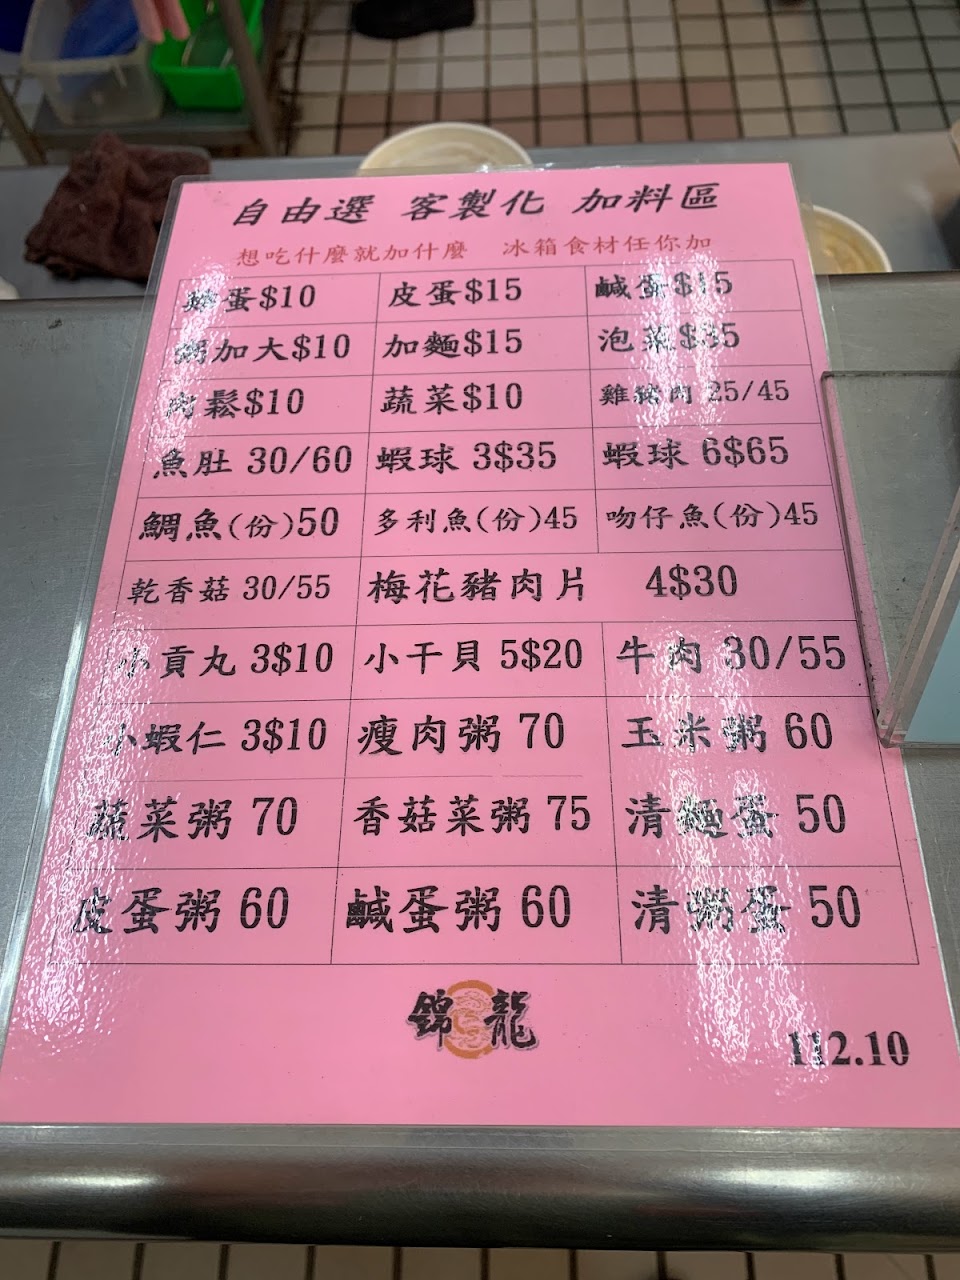 自由選 客製化 加料區
想吃什麼就加什麼 冰箱食材任你加
蛋$10 皮蛋$15 鹹蛋$15
粥加大$10 加麵$15 泡菜$35
肉鬆$10 蔬菜$10 雞 肉 25/45
魚肚 30/60 蝦球 3$35 蝦球 6$65
鯛魚(份)50 多利魚(份)45 吻仔魚(份)45
乾香菇 30/55 梅花豬肉片 4$30
小貢丸 3$10 小干貝 5$20 牛肉 30/55
小蝦仁 3$10 瘦肉粥 70 玉米粥 60
蔬菜粥 70 香菇菜粥 75 清麵蛋 50
皮蛋粥 60 鹹蛋粥 60 清粥蛋 50
錦龍
112.10